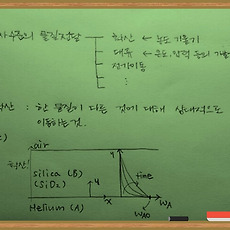 물질전달
확산 ← 농도 기울기
대류 ← 온도, 압력 등의
전기이동
⋮
: 한 물질이 다른 것에 대해 상대적으로
이동하는 것.
air
확산!
silica (B)
(SiO₂)
Helium (A)
y
x
y
time
WA
WA0